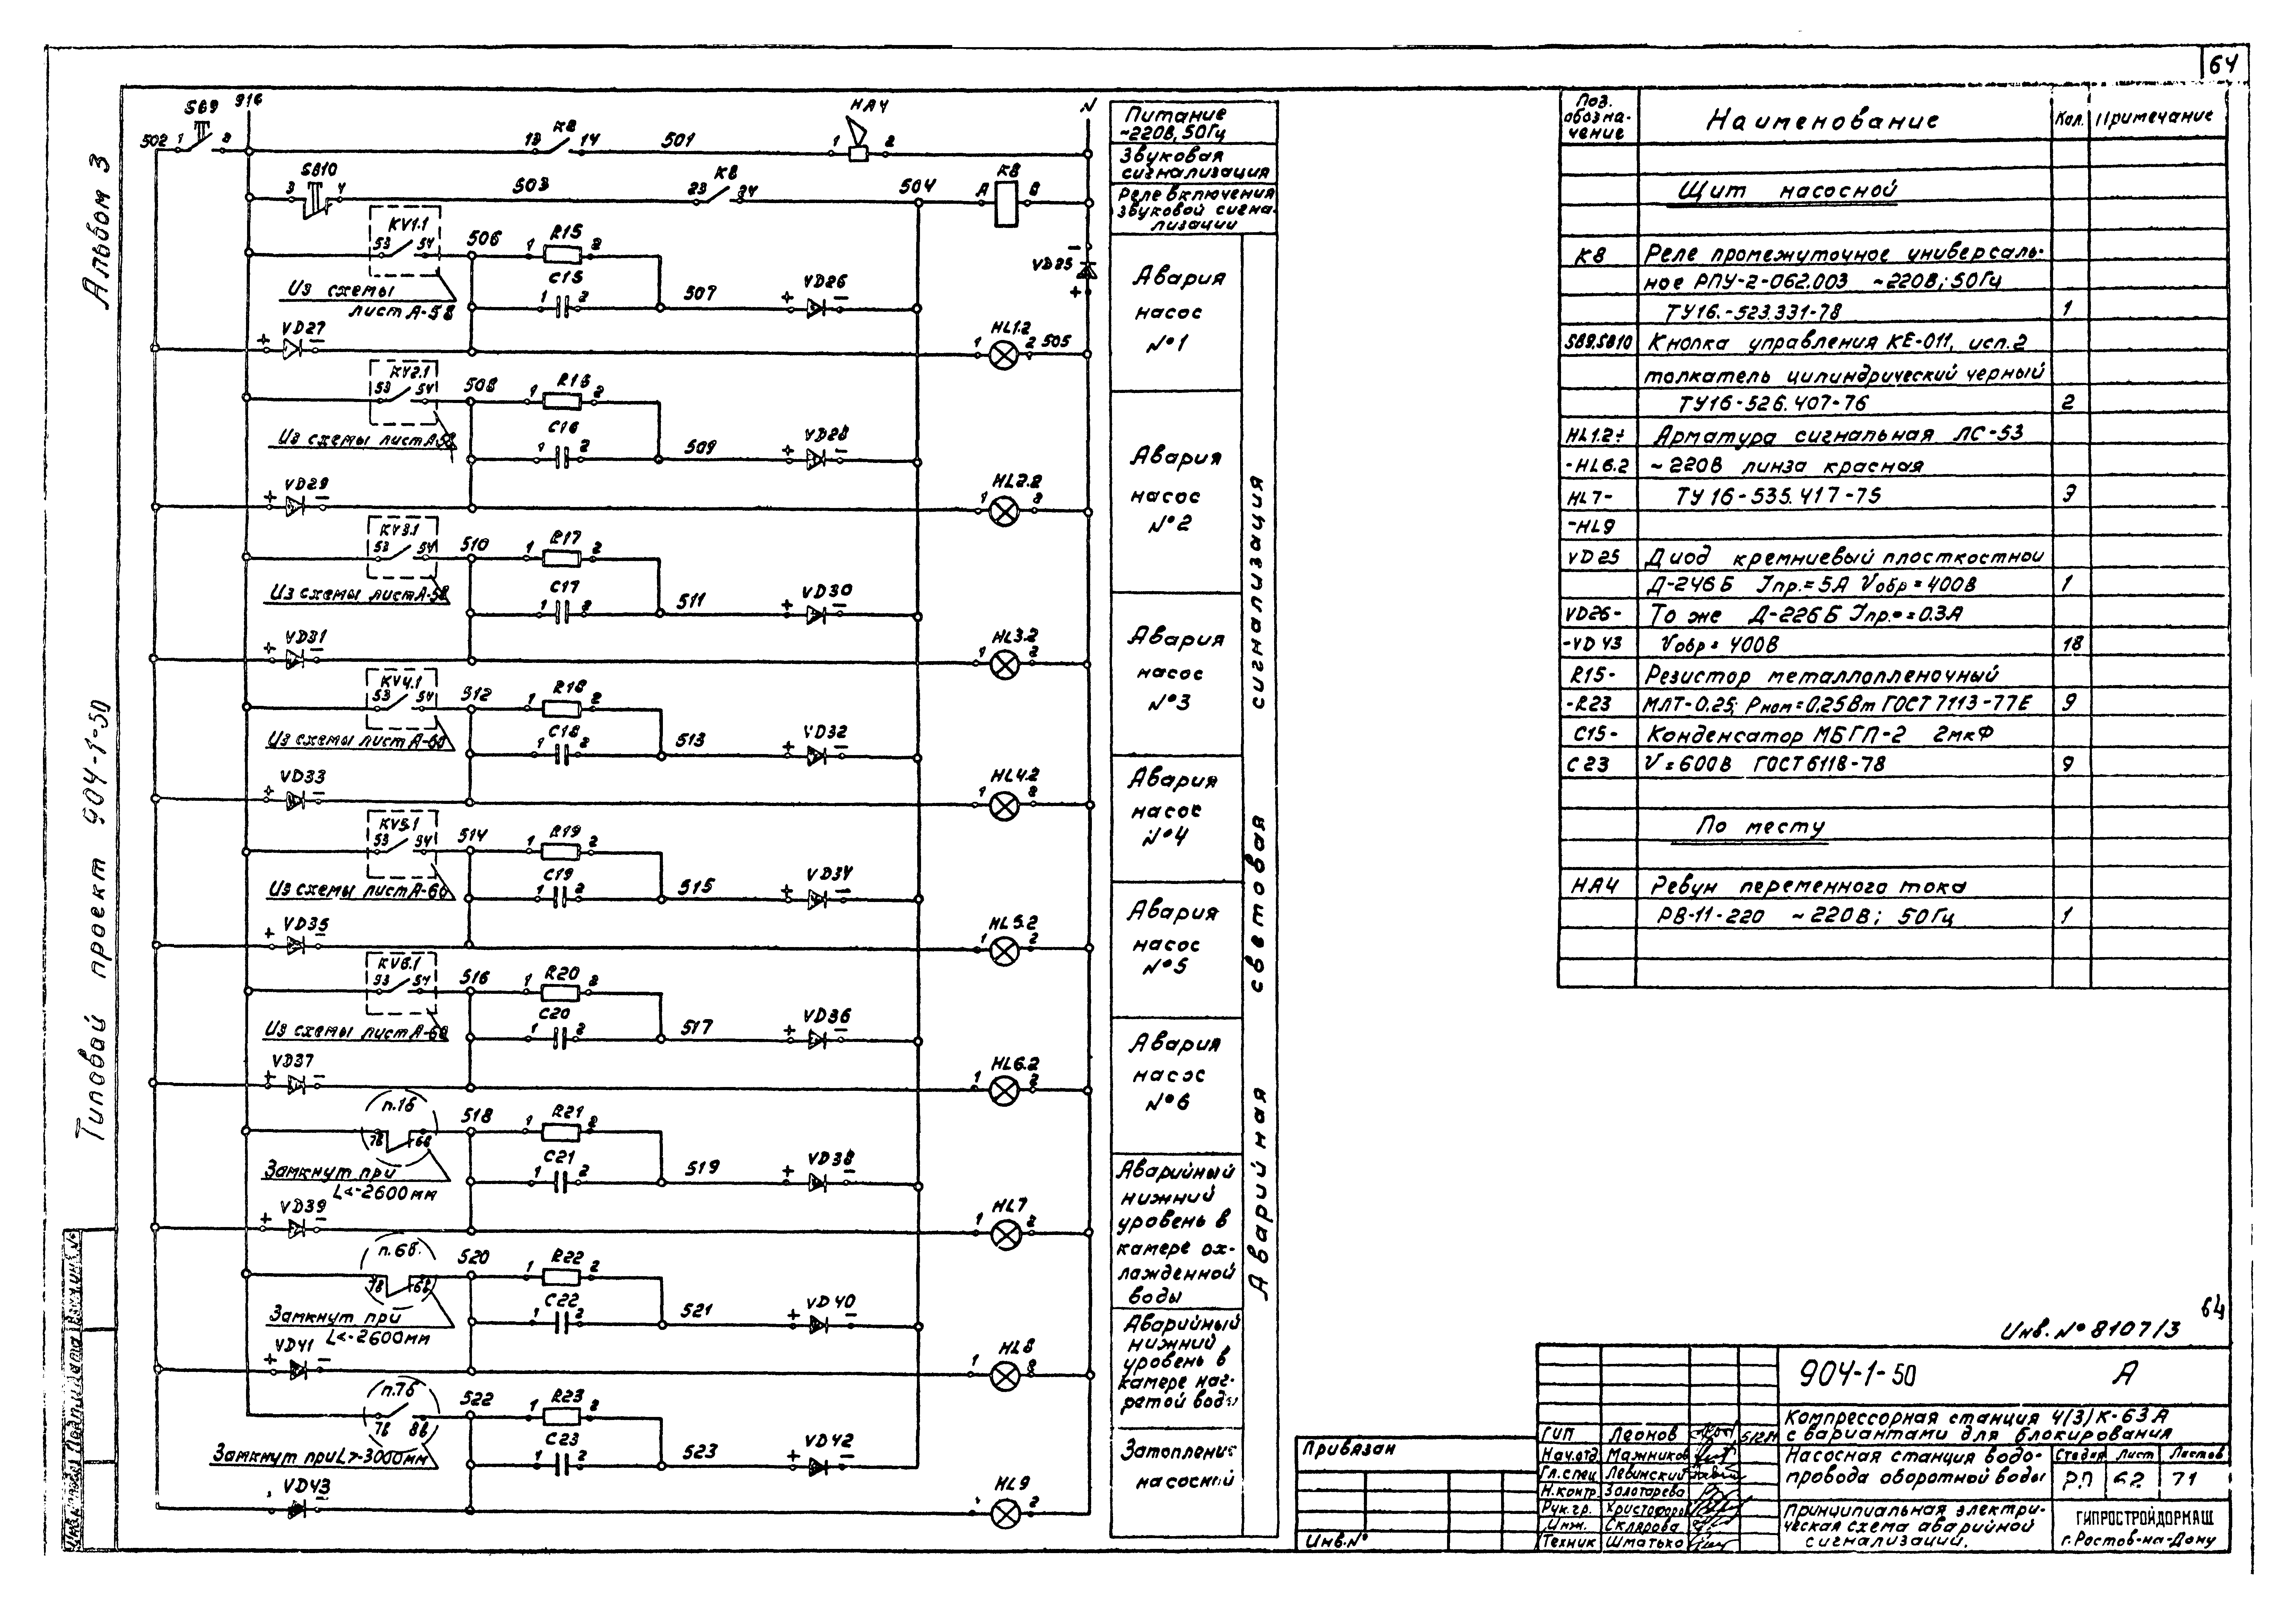 64
Альбом 3
Типовой проект 904-1-50
SB9
916
НА4
N
502 1 2
13 К8 14 501
1 2
SB10
3 4 503
23 К8 24 504
А К8 В
KV1.1
53 54 506
1 R15 2
1 C15 2
507
+ VD26 -
- VD25 +
Из схемы
лист А-58
+ VD27 -
HL1.2
1 2 505
KV2.1
53 54 508
1 R16 2
1 C16 2
509
+ VD28 -
Из схемы лист А-58
+ VD29 -
HL2.2
1 2
KV3.1
53 54 510
1 R17 2
1 C17 2
511
+ VD30 -
Из схемы лист А-58
+ VD31 -
HL3.2
1 2
KV4.1
53 54 512
1 R18 2
1 C18 2
513
+ VD32 -
Из схемы лист А-60
+ VD33 -
HL4.2
1 2
KV5.1
53 54 514
1 R19 2
1 C19 2
515
+ VD34 -
Из схемы лист А-60
+ VD35 -
HL5.2
1 2
KV6.1
53 54 516
1 R20 2
1 C20 2
517
+ VD36 -
Из схемы лист А-60
+ VD37 -
HL6.2
1 2
п.1б
7в 6в 518
1 R21 2
1 C21 2
519
+ VD38 -
Замкнут при
L<-2600мм
+ VD39 -
HL7
1 2
п.6б.
7в 6в 520
1 R22 2
1 C22 2
521
+ VD40 -
Замкнут при
L<-2600мм
+ VD41 -
HL8
1 2
п.7б
7в 8в 522
1 R23 2
1 C23 2
523
+ VD42 -
Замкнут при L>-3000мм
VD43
HL9
2
Питание
~220В, 50Гц
Звуковая
сигнализация
Реле включения
звуковой сигна-
лизации
Авария
насос
№1
Авария
насос
№2
Авария
насос
№3
Авария
насос
№4
Авария
насос
№5
Авария
насос
№6
Аварийный
нижний
уровень в
камере ох-
лажденной
воды
Аварийный
нижний
уровень в
камере наг-
ретой воды
Затопление
насосной
Аварийная световая сигнализация
Поз.
обозна-
чение
Наименование
Кол.
Примечание
Щит насосной
К8 Реле промежуточное универсаль-
ное РПУ-2-062.003 ~220В; 50Гц
ТУ16.-523.331-78 1
SB9,SB10 Кнопка управления КЕ-011, исп.2
толкатель цилиндрический черный
ТУ16-526.407-76 2
HL1.2÷ Арматура сигнальная ЛС-53
-HL6.2 ~220В линза красная
HL7- ТУ16-535.417-75 9
-HL9
VD25 Диод кремниевый плосткостной
Д-246Б Iпр.=5А Vобр=400В 1
VD26- То же Д-226Б Iпр.=0.3А
-VD43 Vобр=400В 18
R15- Резистор металлопленочный
-R23 МЛТ-0.25; Рном=0.25Вт ГОСТ 7113-77Е 9
С15- Конденсатор МБГП-2 2мкФ
С23 V=600В ГОСТ 6118-78 9
По месту
НА4 Ревун переменного тока
РВ-11-220 ~220В; 50Гц 1
64
Инв. № 8107/3
904-1-50 А
Компрессорная станция 4(3)К-63А
с вариантами для блокирования
ГИП Леонов
Нач.отд. Мажников
Гл.спец Левинский
Н.контр. Золотарева
Рук.гр. Христофоров
Инж. Склярова
Техник Шматько
Насосная станция водо-
провода оборотной воды
Стадия Лист Листов
РП 62 71
Принципиальная электри-
ческая схема аварийной
сигнализации.
ГИПРОСТРОЙДОРМАШ
г.Ростов-на-Дону
Привязан
Инв.№